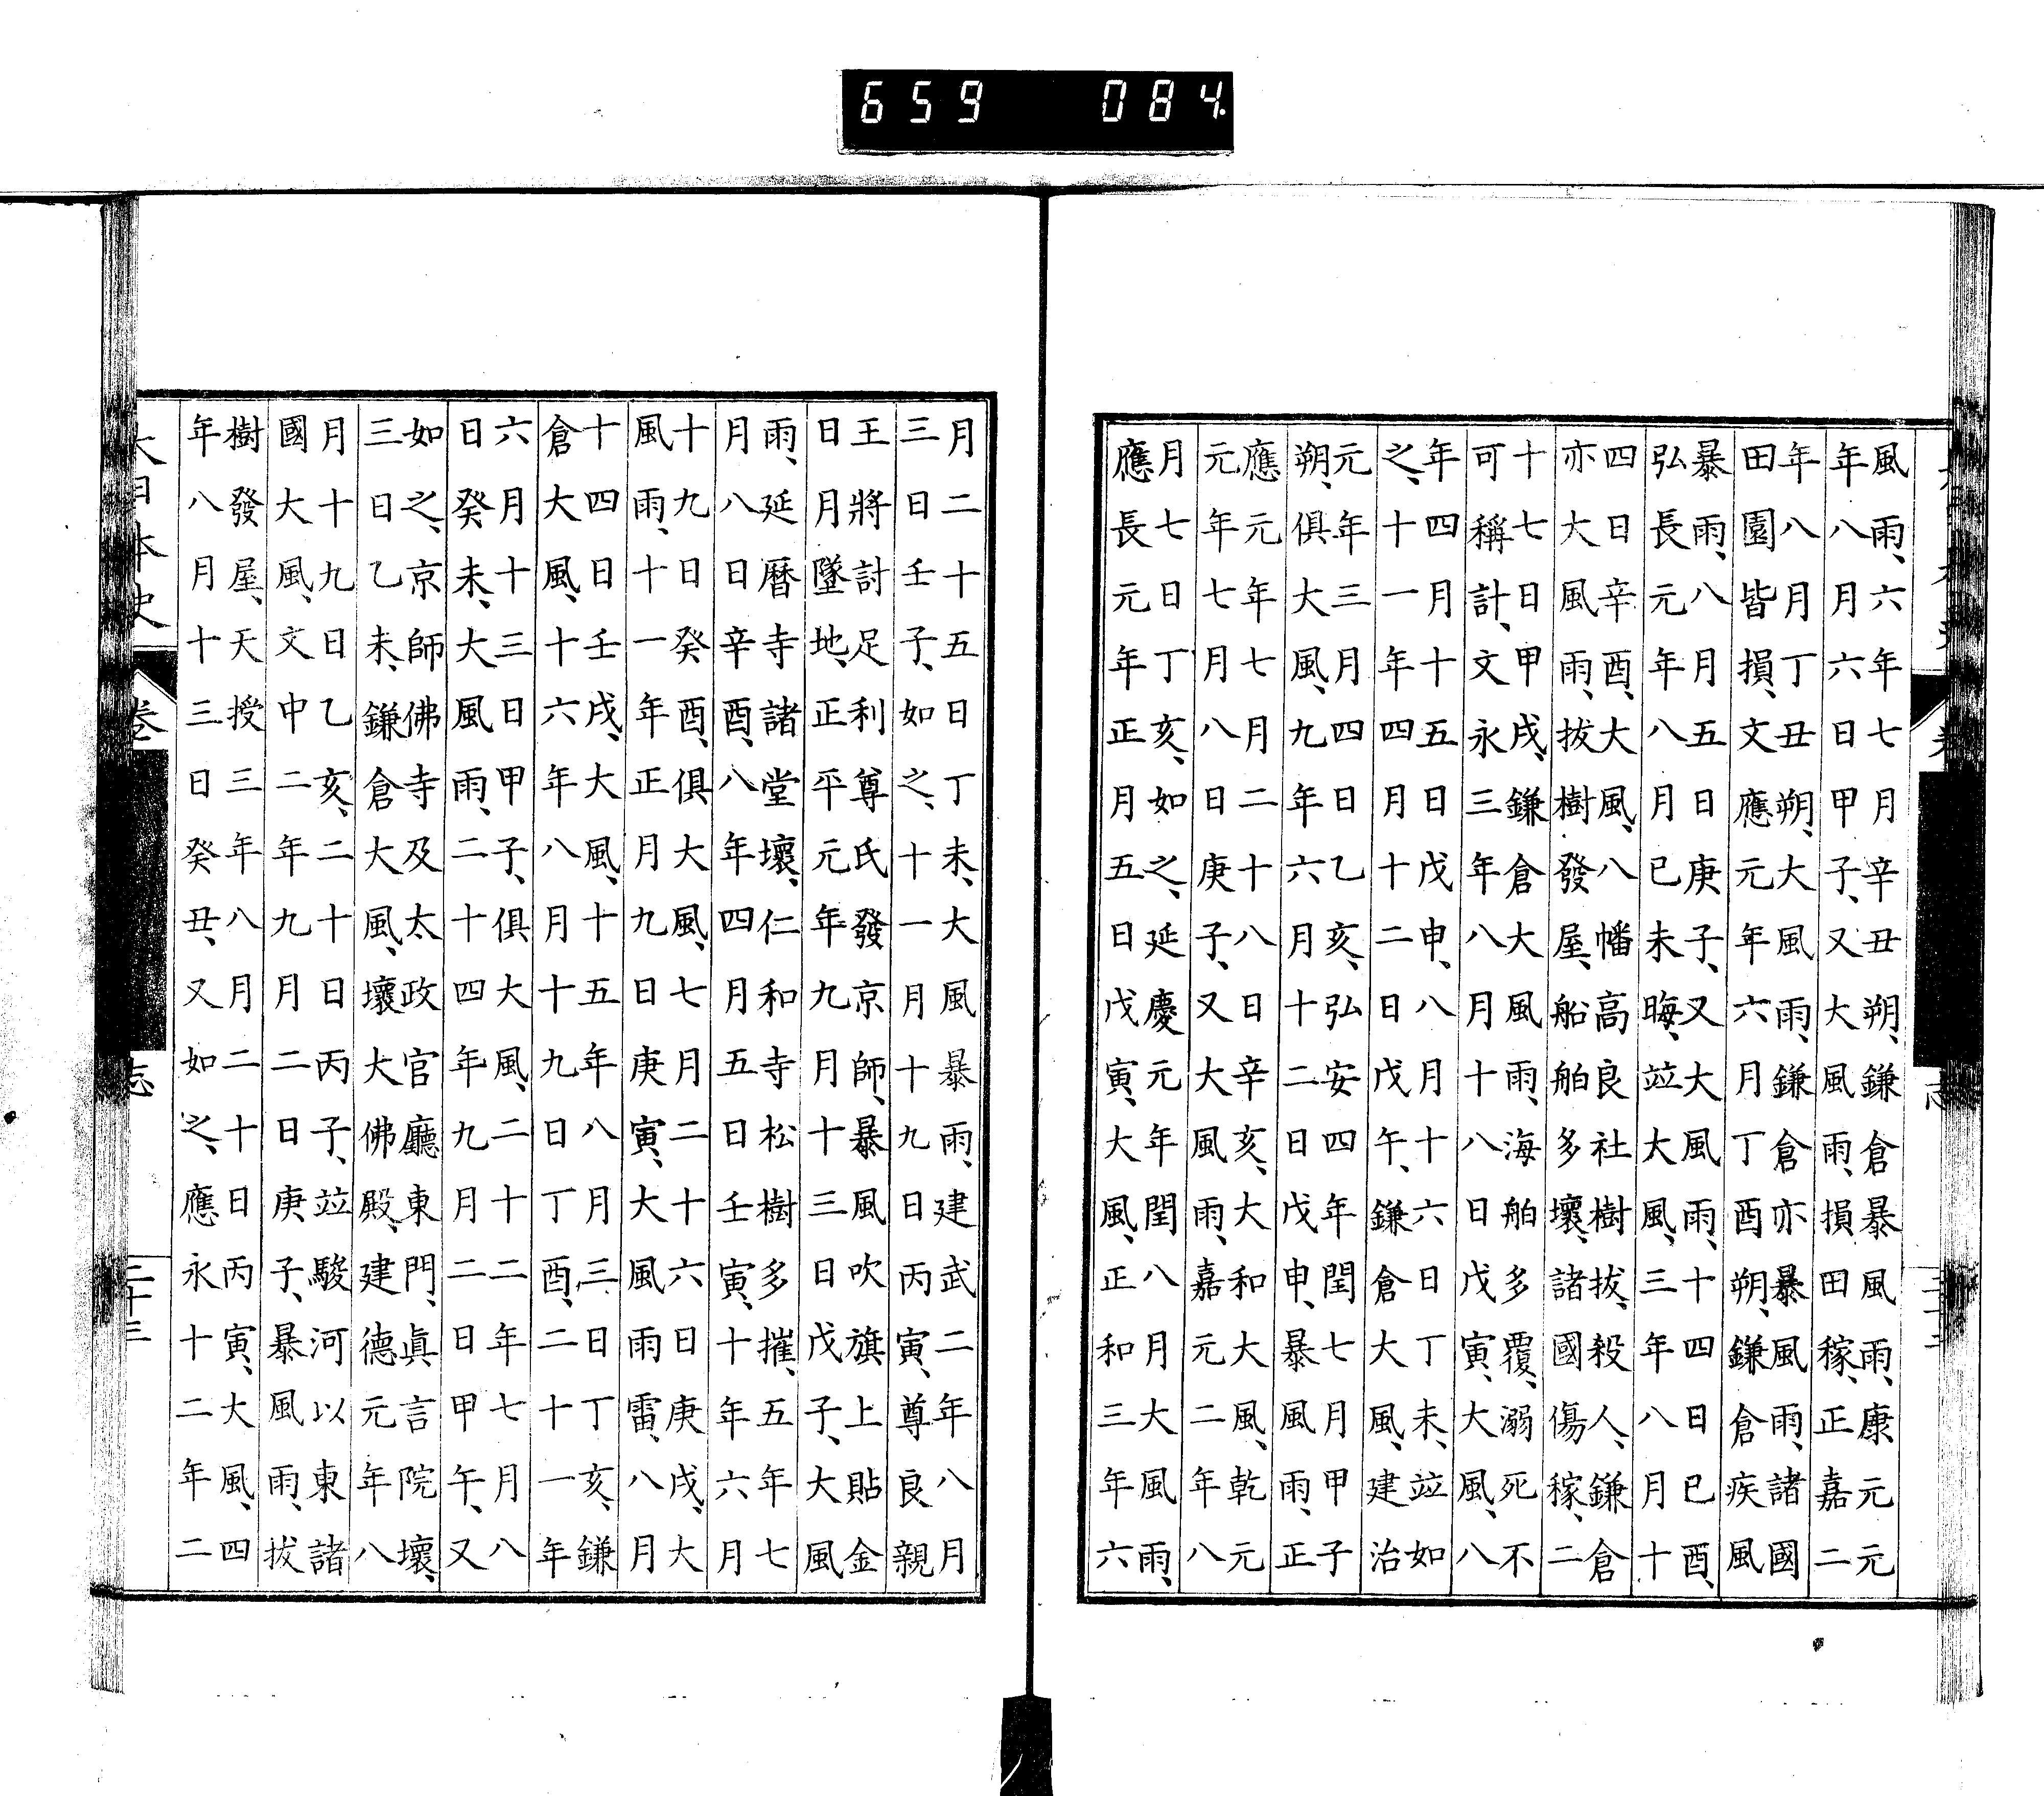 659 084
風雨、六年七月辛丑朔、鎌倉暴風雨、康元元
年八月六日甲子、又大風雨、損田稼、正嘉二
年八月丁丑朔、大風雨、鎌倉亦暴風雨、諸國
田園皆損、文應元年六月丁酉朔、鎌倉疾風
暴雨、八月五日庚子、又大風雨、十四日已酉、
弘長元年八月已未晦、竝大風、三年八月十
四日辛酉、大風、八幡高良社樹拔、殺人、鎌倉
亦大風雨、拔樹發屋、船舶多壞、諸國傷稼、二
十七日甲戌、鎌倉大風雨、海舶多覆、溺死不
可稱計、文永三年八月十八日戊寅、大風、八
年四月十五日戊申、八月十六日丁未、竝如
之、十一年四月十二日戊午、鎌倉大風、建治
元年三月四日乙亥、弘安四年閏七月甲子
朔、俱大風、九年六月十二日戊申、暴風雨、正
應元年七月二十八日辛亥、大和大風、乾元
元年七月八日庚子、又大風雨、嘉元二年八
月七日丁亥、如之、延慶元年閏八月大風雨、
應長元年正月五日戊寅、大風、正和三年六
月二十五日丁未、大風暴雨、建武二年八月
三日壬子、如之、十一月十九日丙寅、尊良親
王將討足利尊氏發京師、暴風吹旗上貼金
日月墜地、正平元年九月十三日戊子、大風
雨、延曆寺諸堂壞、仁和寺松樹多摧、五年七
月八日辛酉、八年四月五日壬寅、十年六月
十九日癸酉、俱大風、七月二十六日庚戌、大
風雨、十一年正月九日庚寅、大風雨雷、八月
十四日壬戌、大風、十五年八月三日丁亥、鎌
倉大風、十六年八月十九日丁酉、二十一年
六月十三日甲子、俱大風、二十二年七月八
日癸未、大風雨、二十四年九月二日甲午、又
如之、京師佛寺及太政官廳東門、眞言院壞、
三日乙未、鎌倉大風、壞大佛殿、建德元年八
月十九日乙亥、二十日丙子、竝駿河以東諸
國大風、文中二年九月二日庚子、暴風雨、拔
樹發屋、天授三年八月二十日丙寅、大風、四
年八月十三日癸丑、又如之、應永十二年二
大日本史
卷
志
二十三